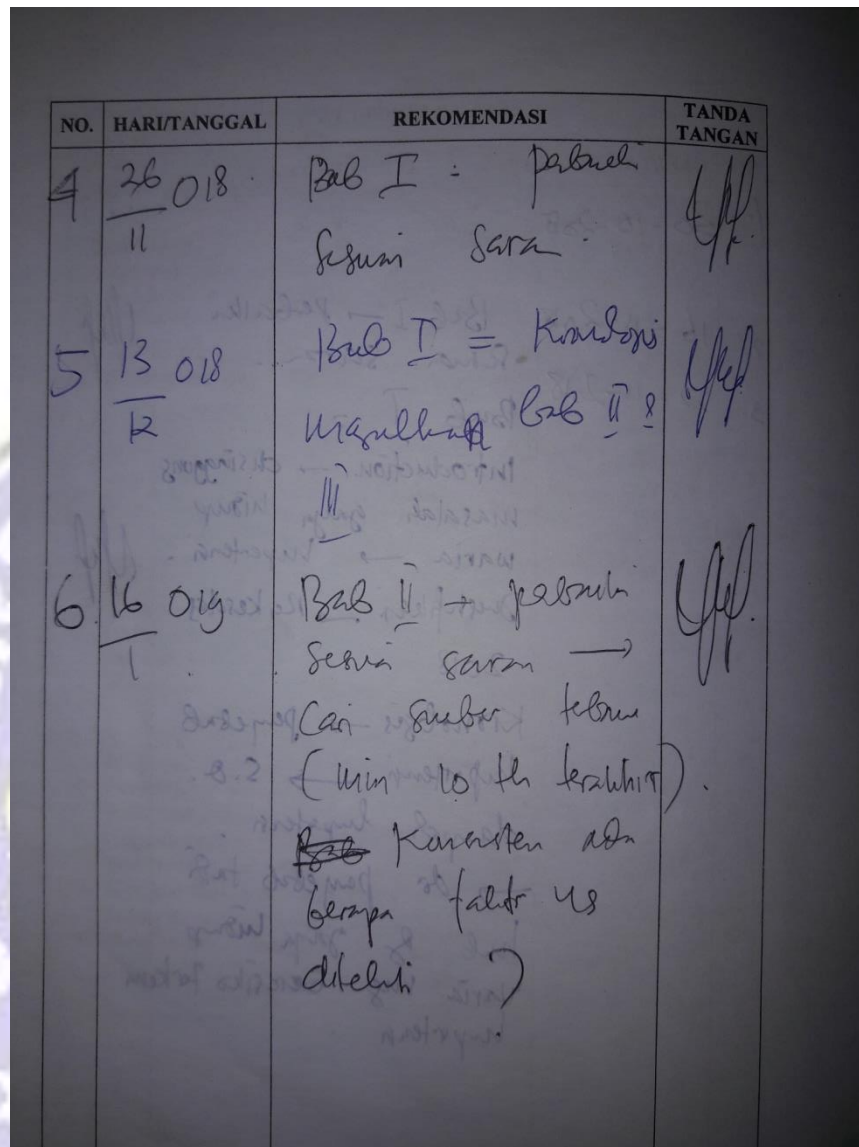 NO. HARI/TANGGAL REKOMENDASI TANDA TANGAN
4 26/11 018 Bab I : perbaiki
sesuai saran.
5 13/12 018 Bab I =
Bab II &
III
6. 16/1 019 Bab II → perbaiki
sesuai saran →
Cari sumber terbaru
(min 10 th terakhir).
Konsisten ada
berapa faktor yg
diteliti ?